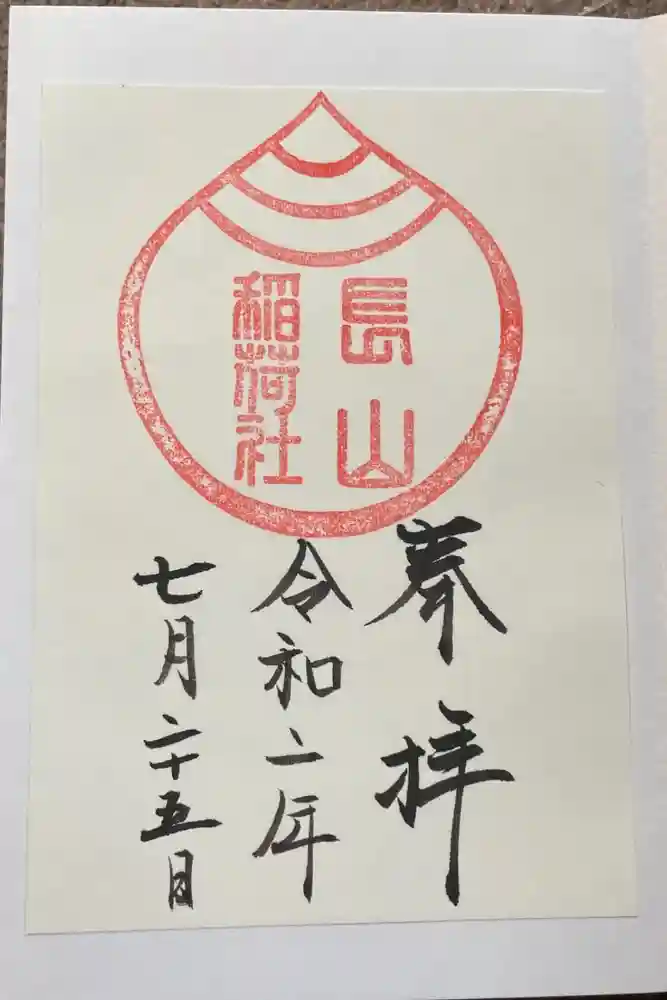 長山
稲荷社
奉拝
令和二年
七月二十五日